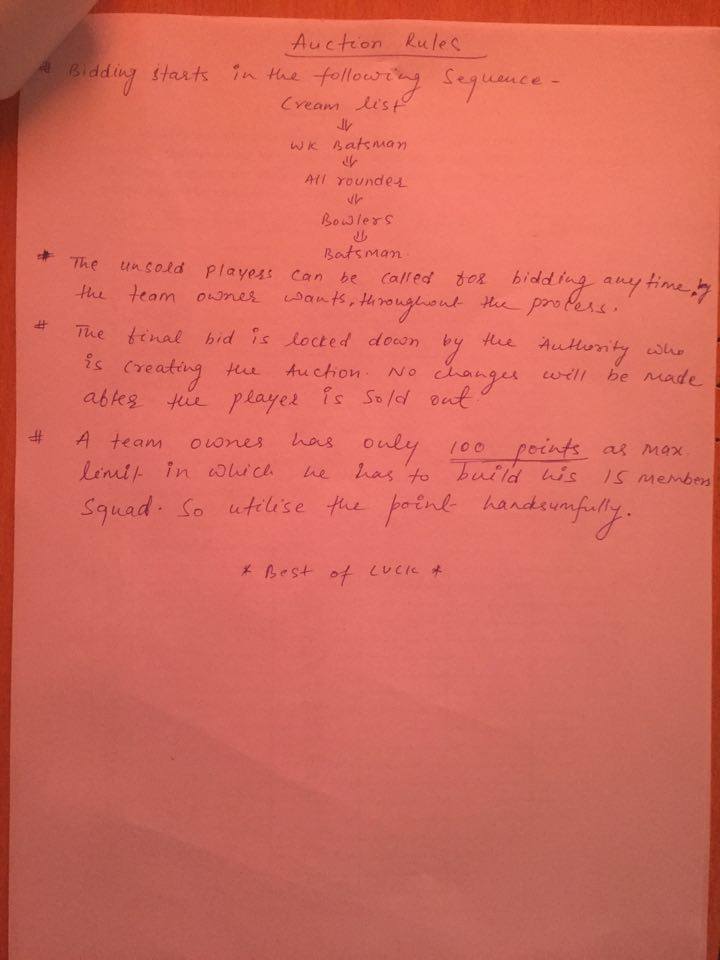 Auction Rules
# Bidding starts in the following sequence -
Cream list
⇓
WK Batsman
⇓
All rounder
⇓
Bowlers
⇓
Batsman
# The unsold players can be called for bidding anytime, by
the team owner wants, throughout the process.
# The final bid is locked down by the Authority who
is creating the Auction. No changes will be made
after the player is sold out.
# A team owner has only 100 points as max
limit in which he has to build his 15 members
squad. So utilise the point handsumfully.
* Best of Luck *